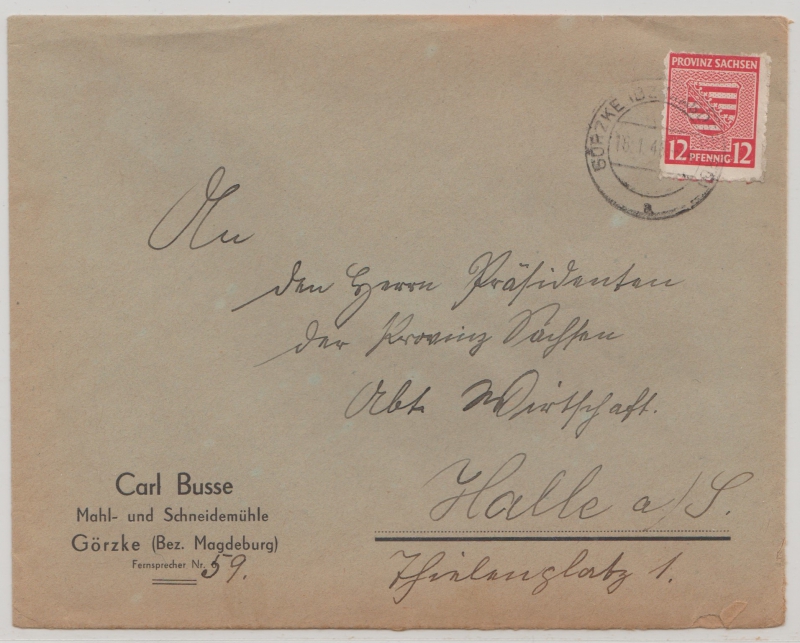 PROVINZ SACHSEN
12 PFENNIG 12
GÖRZKE
a
An
den Herrn Präsidenten
der Provinz Sachsen
Abt. Wirtschaft.
Halle a/S.
Thielenplatz 1.
Carl Busse
Mahl- und Schneidemühle
Görzke (Bez. Magdeburg)
Fernsprecher Nr. 59.